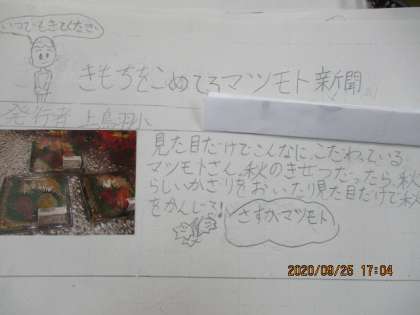 いつでもきてください
きもちをこめてろマツモト新聞
発行者 上鳥羽小
見た目だけでこんなに、こだわっている
マツモトさん。秋のきせつだったら、秋
らしいかざりをおいたり見た目だけで秋
をかんじて!
さすがマツモト
2020/09/25 17:04